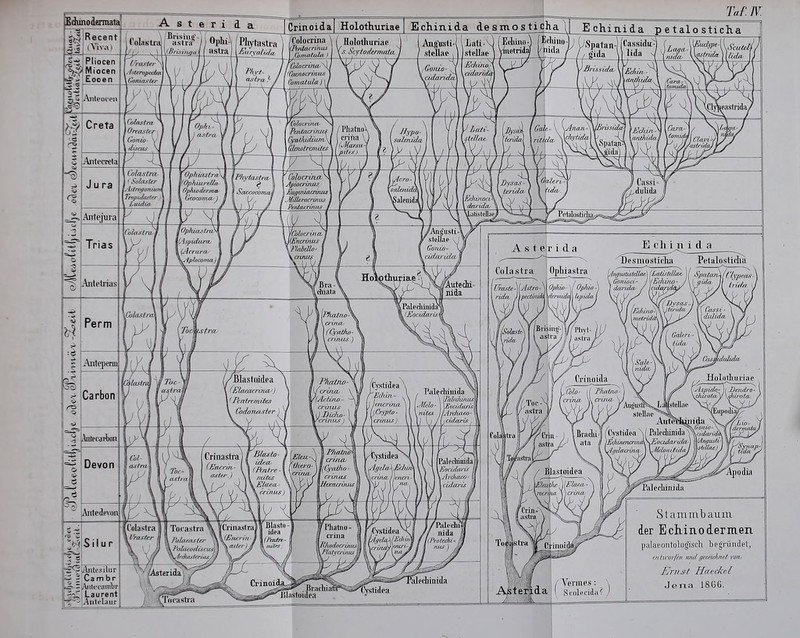 Taf. IV.
Echinodermata
Asterida
Crinoida
Holothuriae
Echinida desmosticha
Echinida petalosticha
Recent
(Viva)
Pliocen
Miocen
Eocen
Anteocen
Creta
Antecreta
Jura
Antejura
Trias
Antetrias
Perm
Anteperm
Carbon
Antecarbon
Devon
Antedevon
Silur
Antesilur
Cambr
Antecambr
Laurent
Antelaur
Colastra
Brisingastra
(Brisinga)
Ophiastra
Phytastra
Euryalida
Colocrina
Pentacrinus
Comatula
Holothuriae
s. Scytodermata
Angustistellae
Latistellae
Echinometrida
Echinonida
Spatangida
Cassidulida
Uraster
Goniaster
Phytastra
Goniocidarida
Echinocidarida
Brissida
Echinanthida
Clypeastrida
Colastra
Oreaster
Goniodiscus
Ophiastra
Colocrina
Pentacrinus
Cyathidium
Glenotremites
Phatnocrina
(Marsupites)
Hyposalenida
Latistellae
Dysasterida
Galeritida
Ananchytida
Brissida
Spatangida
Echinanthida
Colastra
Solaster
Astrogonium
Tropidaster
Luidia
Ophiastra
Ophiurella
Ophioderma
Geocoma
Phytastra
?
Saccocoma
Colocrina
Apiocrinus
Eugeniacrinus
Millerocrinus
Pentacrinus
?
Acrosalenida
Salenida
Echinocidarida
Latistellae
Dysasterida
Galeritida
Cassidulida
Petalosticha
Colastra
Ophiastra
Aspidura
Acrura
Aplocoma
Colocrina
Encrinus
Flabellocrinus
?
Angustistellae
Goniocidarida
Brachiata
Holothuriae?
Autechinida
Colastra
Tocastra
Phatnocrina
(Cyathocrinus)
Palechinida
(Eocidaris)
Colastra
Tocastra
Blastoidea
(Elaeacrina)
Pentremites
Codonaster
Phatnocrina
Actinocrinus
Dichocrinus
Cystidea
Echinencrinus
Cryptocrinus
Palechinida
Melonites
Palechinus
Eocidaris
Archaeocidaris
Colastra
Tocastra
Crinastra
(Encrinaster)
Blastoidea
Pentremites
Elaeacrinus
Eleutherocrina
Phatnocrina
Cyathocrinus
Hexacrinus
Cystidea
Palechinida
Eocidaris
Archaeocidaris
Colastra
Uraster
Tocastra
Palasaster
Palaeodiscus
Archasterias
Crinastra
(Encrinaster)
Blastoidea
Pentremites
Phatnocrina
Rhodocrinus
Platycrinus
Cystidea
Palechinida
(Protechinus)
Asterida
Tocastra
Crinoida
Blastoidea
Brachiata
Cystidea
Palechinida
Asterida
Echinida
Desmosticha
Petalosticha
Colastra
Ophiastra
Angustistellae
Goniocidarida
Latistellae
Echinocidarida
Spatangida
Clypeastrida
Brisingastra
Phytastra
Echinometrida
Dysasterida
Cassidulida
Galeritida
Salenida
Cassidulida
Crinoida
Colocrina
Phatnocrina
Angustistellae
Latistellae
Holothuriae
Aspidochirota
Dendrochirota
Eupodia
Autechinida
Liodermata
Synaptida
Apodia
Tocastra
Colastra
Crinastra
Brachiata
Cystidea
Echinencrina
Agelacrina
Palechinida
Eocidarida
Melonitida
Goniocidarida
(Angustistellae)
Tocastra
Blastoidea
Eleutherocrina
Elaeacrina
Palechinida
Crinastra
Tocastra
Crinoida
Asterida
Vermes:
(Scolecida?)
Stammbaum
der Echinodermen
palaeontologisch begründet,
entworfen und gezeichnet von:
Ernst Haeckel
Jena 1866.